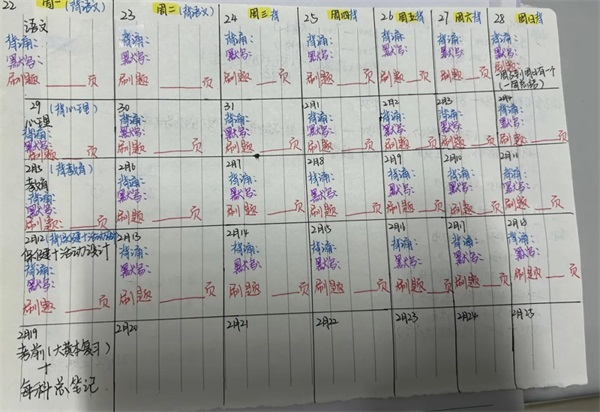 22 周一(背语文)
语文
背诵:
默写:
刷题 ____页
23 周二(背语文)
背诵:
默写:
刷题 ____页
24 周三背
背诵:
默写:
刷题 ____页
25 周四背
背诵:
默写:
刷题 ____页
26 周五背
背诵:
默写:
刷题 ____页
27 周六背
背诵:
默写:
刷题 ____页
28 周日背
背诵:
默写:
刷题
29 (背心理)
心理
背诵:
默写:
刷题 ____页
30
背诵:
默写:
刷题 ____页
31
背诵:
默写:
刷题 ____页
2月1
背诵:
默写:
刷题 ____页
2月2
背诵:
默写:
刷题 ____页
2月3
背诵:
默写:
刷题 ____页
2月4
背诵:
默写:
刷题 ____页
2月5 (背教育)
教育
背诵:
默写:
刷题 ____页
2月6
背诵:
默写:
刷题 ____页
2月7
背诵:
默写:
刷题 ____页
2月8
背诵:
默写:
刷题 ____页
2月9
背诵:
默写:
刷题 ____页
2月10
背诵:
默写:
刷题 ____页
2月11
背诵:
默写:
刷题 ____页
2月12 (背保健+活动设计)
保健+活动设计
背诵:
默写:
刷题 ____页
2月13
背诵:
默写:
刷题 ____页
2月14
背诵:
默写:
刷题 ____页
2月15
背诵:
默写:
刷题 ____页
2月16
背诵:
默写:
刷题 ____页
2月17
背诵:
默写:
刷题 ____页
2月18
背诵:
默写:
刷题 ____页
2月19
考前(大黄本复习)
+
每科总笔记
2月20
2月21
2月22
2月23
2月24
2月25